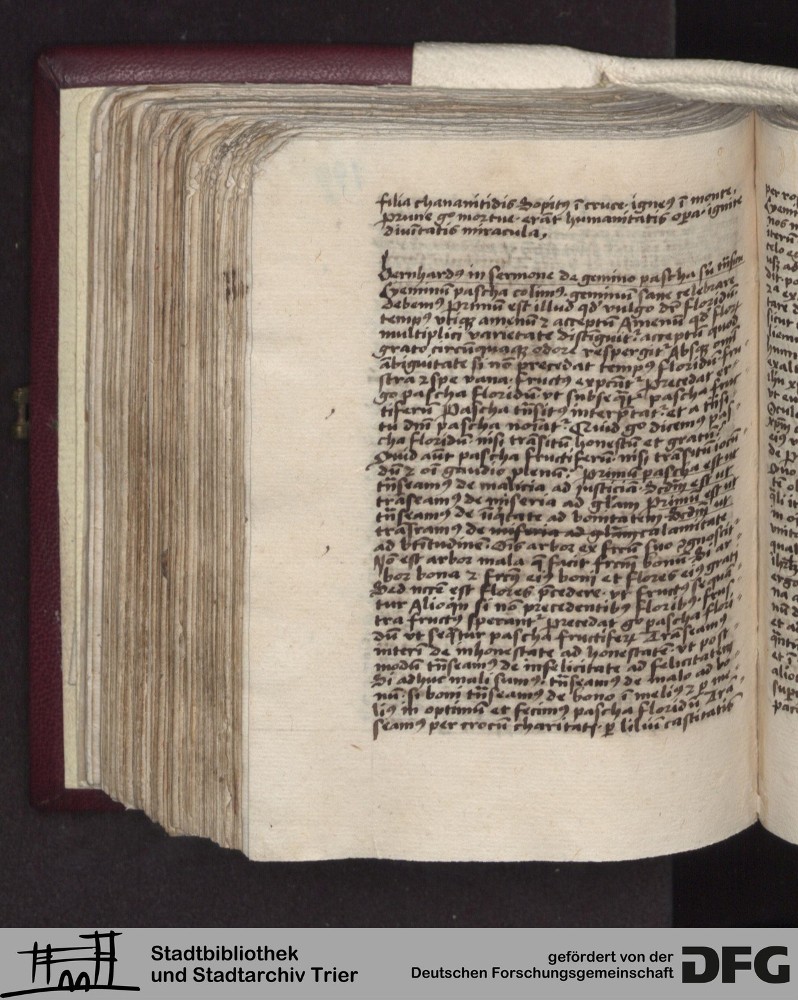 filia chananitidis Sopitꝰ ī cruce · igneꝰ ī monte ·
Prune go mortue · erāt humanitatis oꝑa · ignite
diuītatis miracula,
Bernhardꝰ in sermone de gemino pascha
Geminū pascha colimꝰ · geminū sane celebrare
debemꝰ Primum est illud qd vulgo dr̄ floridū
tempꝰ vtiqꝫ amenū ⁊ acceptū Amenū qd flor
multiplici varietate distīguit · acceptū quod
grato circūquaqꝫ odore respergit Absqꝫ omī
ābiguitate si nō precedat tempꝰ floridū fru
stra ⁊ spe vana · fructꝰ expectāt Precedat er
go pascha floridū · vt subseqt pascha fruc
tiferū Pascha trāsitꝰ interp̄tat · et a trāsi
tu dn̄i pascha noīat Quid go dicem pas
cha floridū nisi trāsitū honestū et gratū ·
Quid aūt pascha fructiferū nisi trāsitū iocū
dū ⁊ oī gaudio plenū · Primū pascha est ut
trāseamꝰ de malicia ad iusticiā · Secdm est ut
trāseamꝰ de miseria ad gl̄am Primū est ut
trāseamꝰ de iniqtate ad bonitatem · Secdm ut
trāseamꝰ de miseria ad gl̄am calamitate
ad btitudinē · Ois arbor ex frcū suo ꝯgnoscit
Nō est arbor mala q̄ facit frcm̄ bonū · Si ar
bor bona ⁊ frcꝰ eiꝰ boni et flores eiꝰ grati
Sed nec̄e est flores p̄cedere · vt fructꝰ sequā
tur Alioqin si nō precedentibꝰ floribꝰ · frus
tra fructꝰ sperant Precedat go pascha flori
dū vt seqtur pascha fructiferū Trāseamꝰ
interī de inhonestate ad honestatē · vt post
modū trāseamꝰ de infelicitate ad felicitatem
Si adhuc mali sumꝰ · trāseamꝰ de malo ad bo
nū · si boni trāseamꝰ de bono ī meliꝰ ⁊ ꝑ me
liꝰ in optimū et fecimꝰ pascha floridū Trā
seamꝰ per crocū charitatis · ꝑ liliū castitatis
Stadtbibliothek
und Stadtarchiv Trier
gefördert von der
Deutschen Forschungsgemeinschaft
DFG